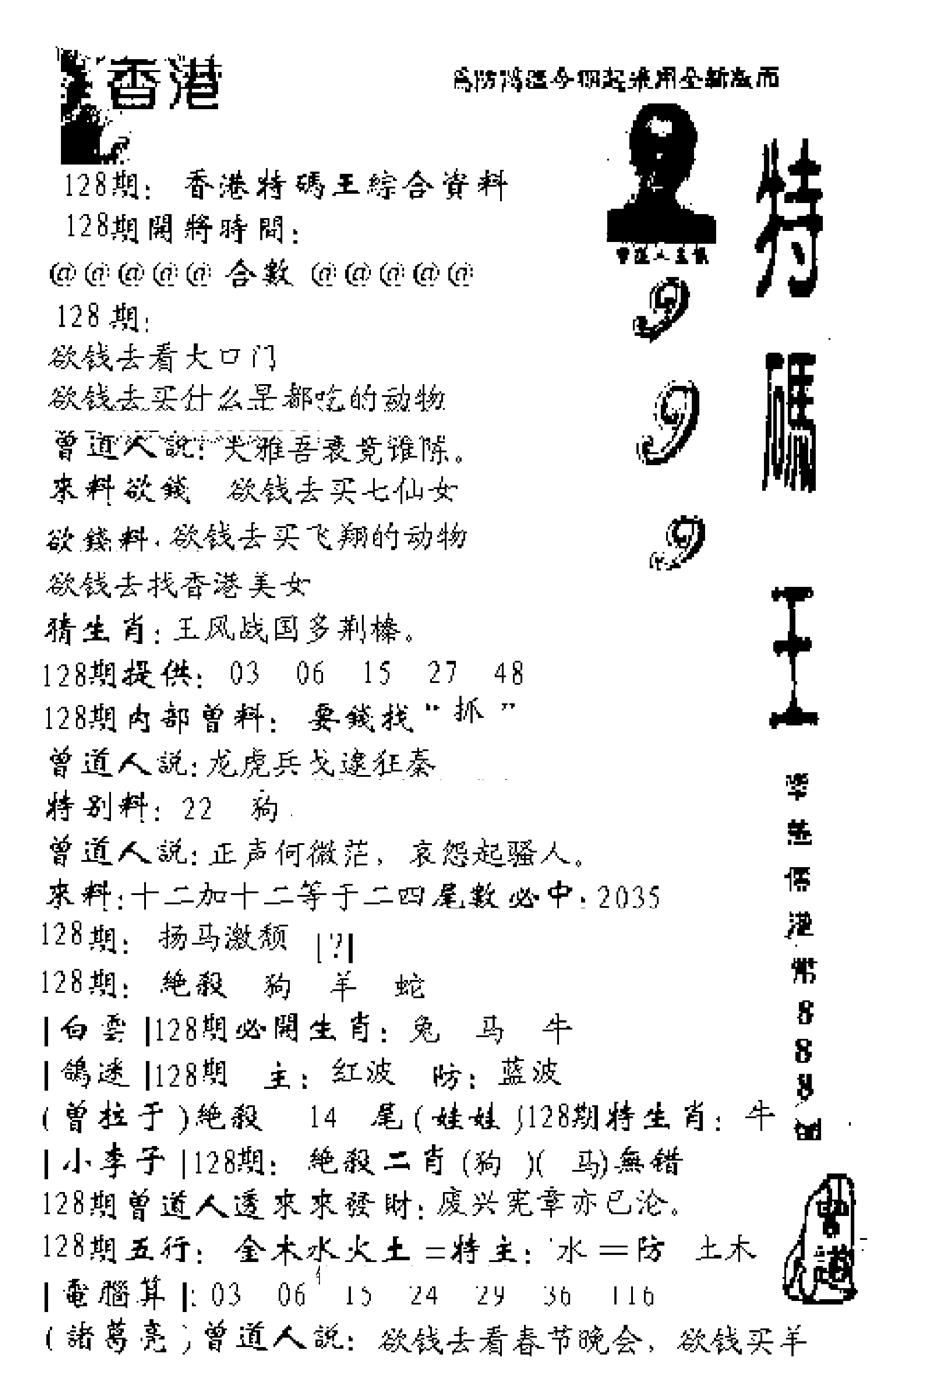 香港
為防濫今期起采用全新版面
128期： 香港特碼王綜合資料
128期開將時間：
@@@@@合數@@@@@
128期：
欲钱去看大口门
欲钱去买什么是都吃的动物
曾道人説：大雅吾衰竞谁陈。
來料欲錢 欲钱去买七仙女
欲錢料．欲钱去买飞翔的动物
欲钱去找香港美女
猜生肖：王风战国多荆榛。
128期提供： 03 06 15 27 48
128期内部曾料： 要錢找“抓”
曾道人説：龙虎兵戈逮狂秦
特别料： 22 狗
曾道人説：正声何微茫，哀怨起骚人。
來料：十二加十二等于二四尾數必中：2035
128期： 扬马激颓 |?|
128期： 絶殺 狗 羊 蛇
|白雲|128期必開生肖：兔 马 牛
|鴿迷|128期 主：红波 防：蓝波
(曾拉于)絶殺 14 尾(娃娃)128期特生肖：牛
|小李子|128期： 絶殺二肖(狗 )( 马)無错
128期曾道人透來來發財：废兴宪章亦已沦。
128期五行： 金木水火土=特主：水=防 土木
|電腦算|：03 06 4 15 24 29 36 116
(諸葛亮)曾道人説：欲钱去看春节晚会，欲钱买羊
曾道人主
999
特碼王
港幣888
曾道